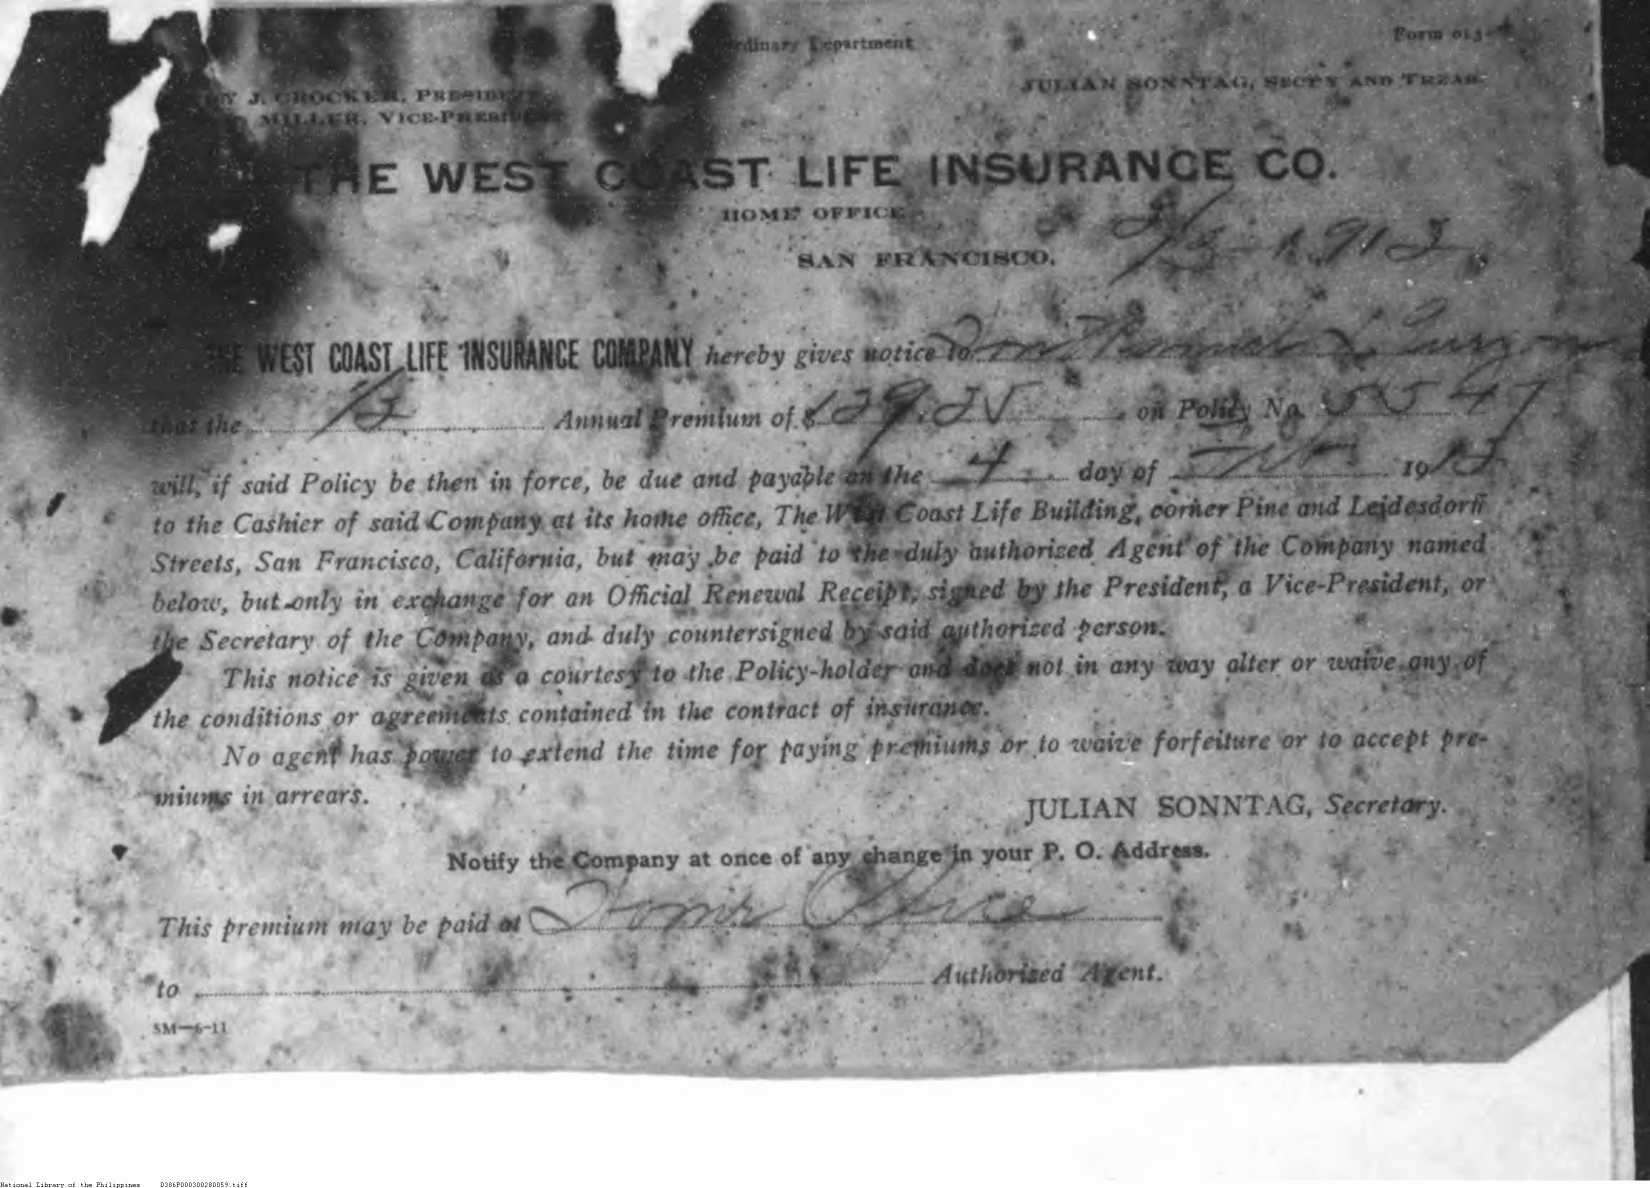 Ordinary Department
Form 013
J. CROCKER, PRESIDENT
JULIAN SONNTAG, SECT'Y AND TREAS.
MILLER, VICE-PRESIDENT
THE WEST COAST LIFE INSURANCE CO.
HOME OFFICE
SAN FRANCISCO, 1912
THE WEST COAST LIFE INSURANCE COMPANY hereby gives notice to
that the 1/2 Annual Premium of $129.25 on Policy No. 5547
will, if said Policy be then in force, be due and payable on the 4 day of 19
to the Cashier of said Company at its home office, The West Coast Life Building, corner Pine and Leidesdorff
Streets, San Francisco, California, but may be paid to the duly authorized Agent of the Company named
below, but only in exchange for an Official Renewal Receipt, signed by the President, a Vice-President, or
the Secretary of the Company, and duly countersigned by said authorized person.
This notice is given as a courtesy to the Policy-holder and does not in any way alter or waive any of
the conditions or agreements contained in the contract of insurance.
No agent has power to extend the time for paying premiums or to waive forfeiture or to accept pre-
miums in arrears.
JULIAN SONNTAG, Secretary.
Notify the Company at once of any change in your P. O. Address.
This premium may be paid at Home Office
to Authorized Agent.
5M—6-11
National Library of the Philippines D386P000300280059.tiff